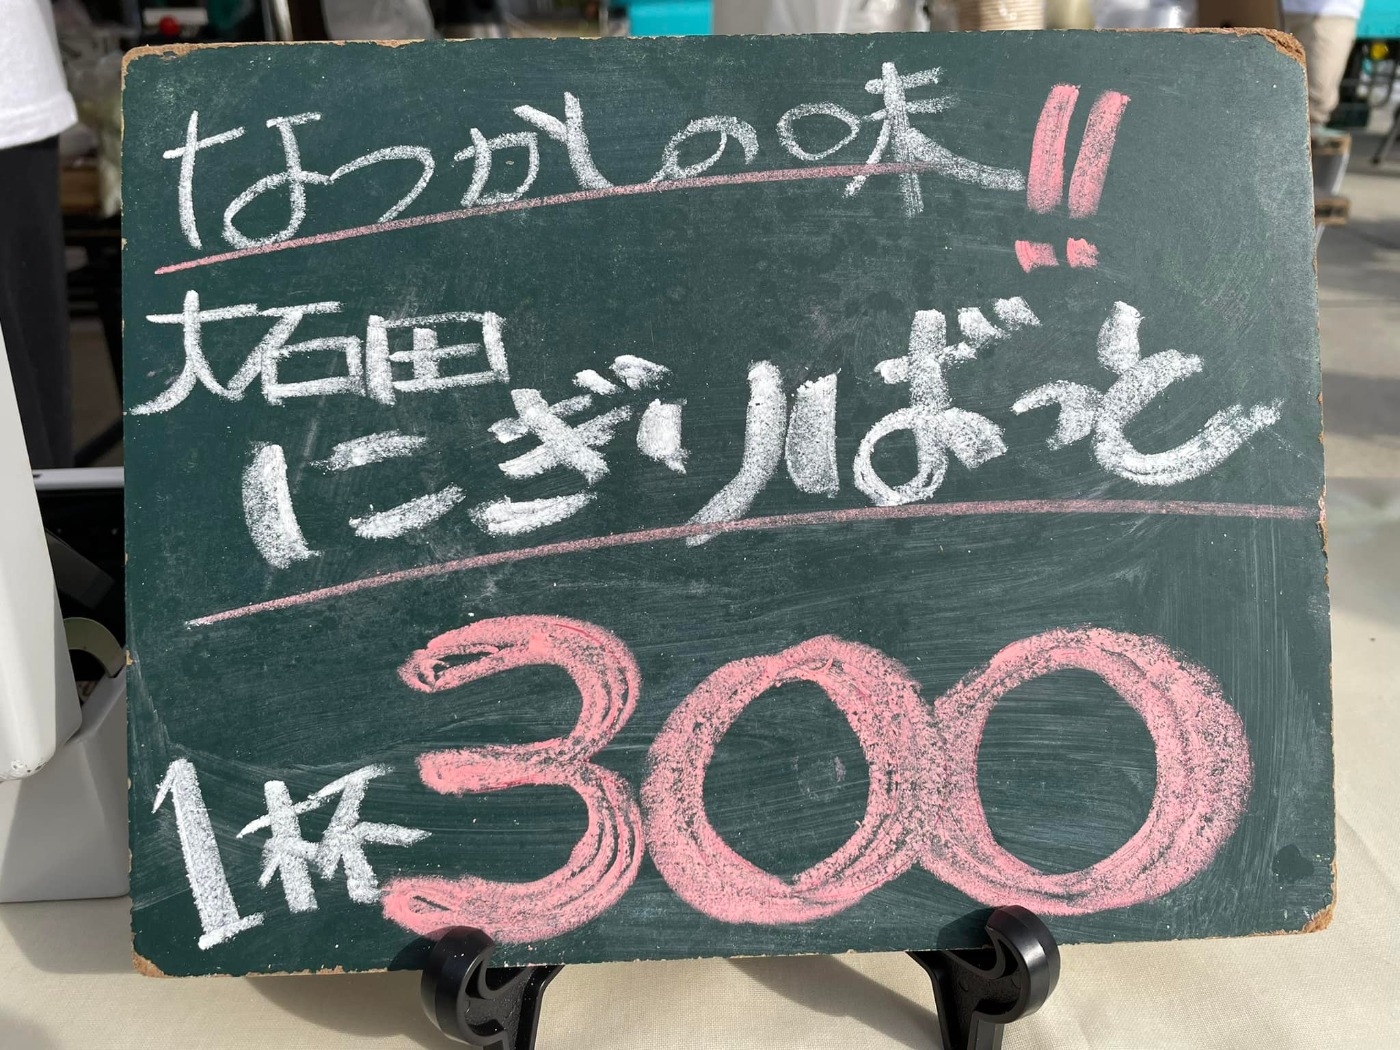 なつかしの味!!
大石田
にぎりばっと
1杯300